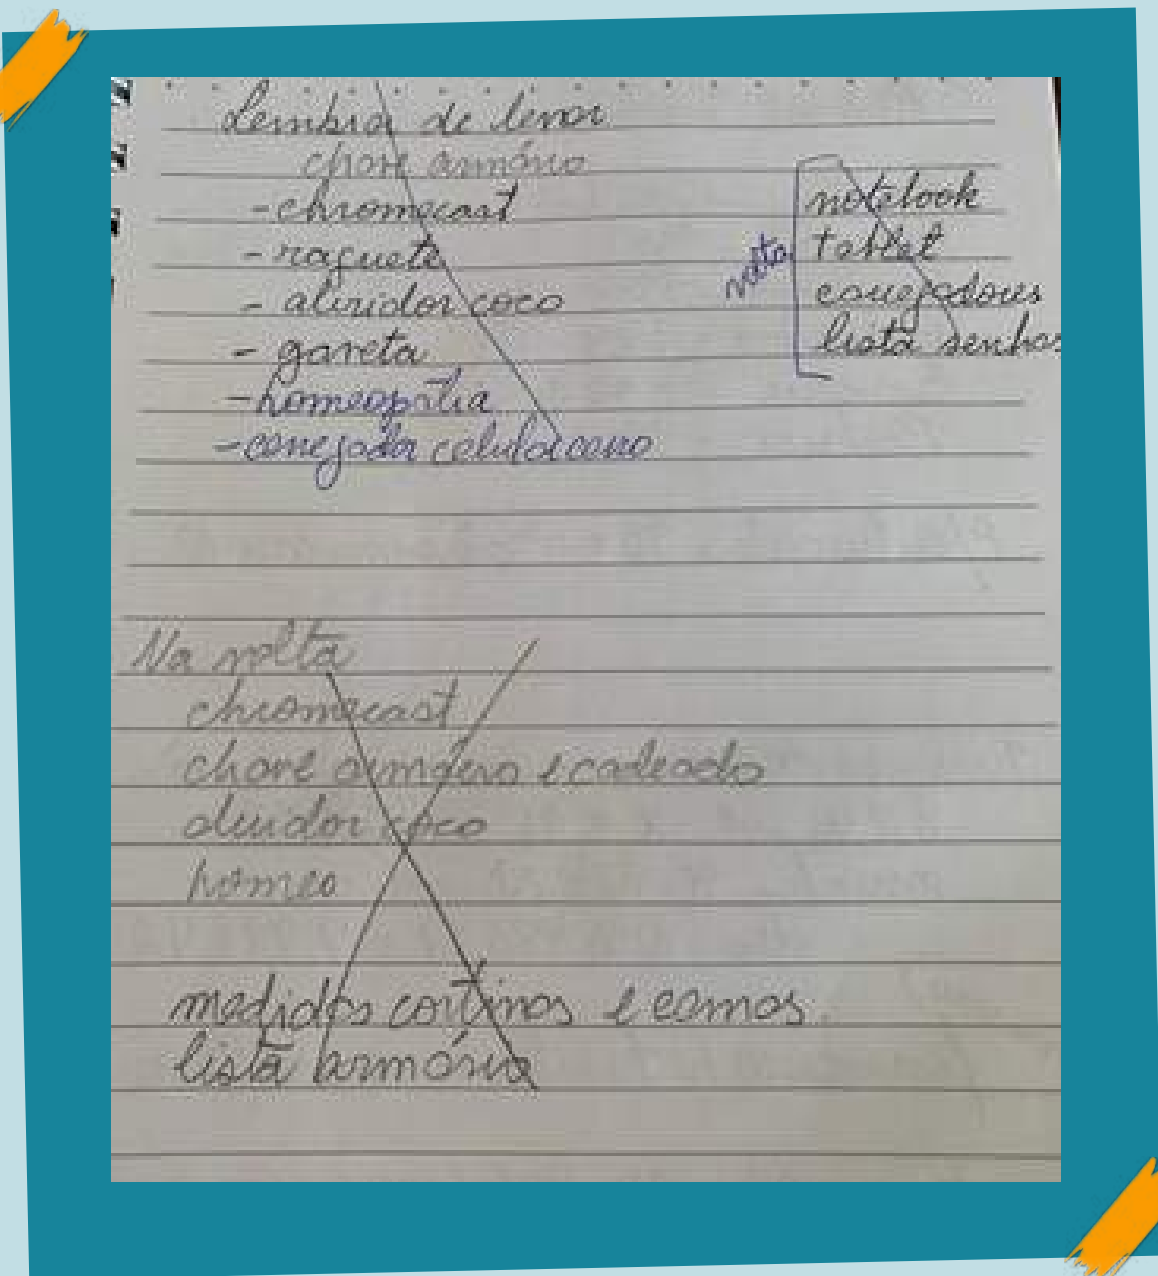 Lembrar de levar
chave armário
- chromecast
- raquete
- abridor coco
- gaveta
- homeopatia
- carregador celular carro
volta
notebook
tablet
carregadores
lista senhas
Na volta
chromecast
chave armário e cadeado
abridor coco
homeo
medidas cortinas e camas.
lista armário